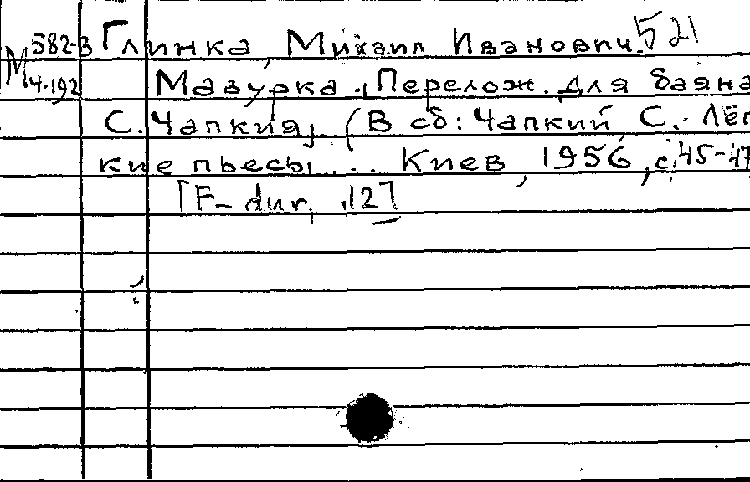 М 582-В Глинка, Михаил Иванович. 521
4-192 Мазурка. Перелож. для баяна
С. Чапкия, (В сб: Чапкий С. Лёг
кие пьесы... Киев, 1956, с. 45-47
[F-dur, 12]